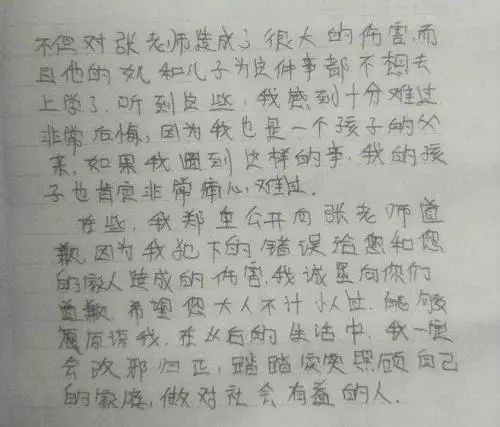 不但对张老师造成了很大的伤害,而
且他的女儿和儿子为这件事都不想去
上学了.听到这些,我感到十分难过.
非常后悔,因为我也是一个孩子的父
亲,如果我遇到这样的事.我的孩
子也肯定非常痛心,难过.
在些,我郑重公开向张老师道
歉.因为我犯下的错误给您和您
的家人造成的伤害.我诚恳向你们
道歉.希望您大人不计小人过.能够
原谅我.在以后的生活中,我一定
会改邪归正,踏踏实实照顾自己
的家庭,做对社会有益的人.